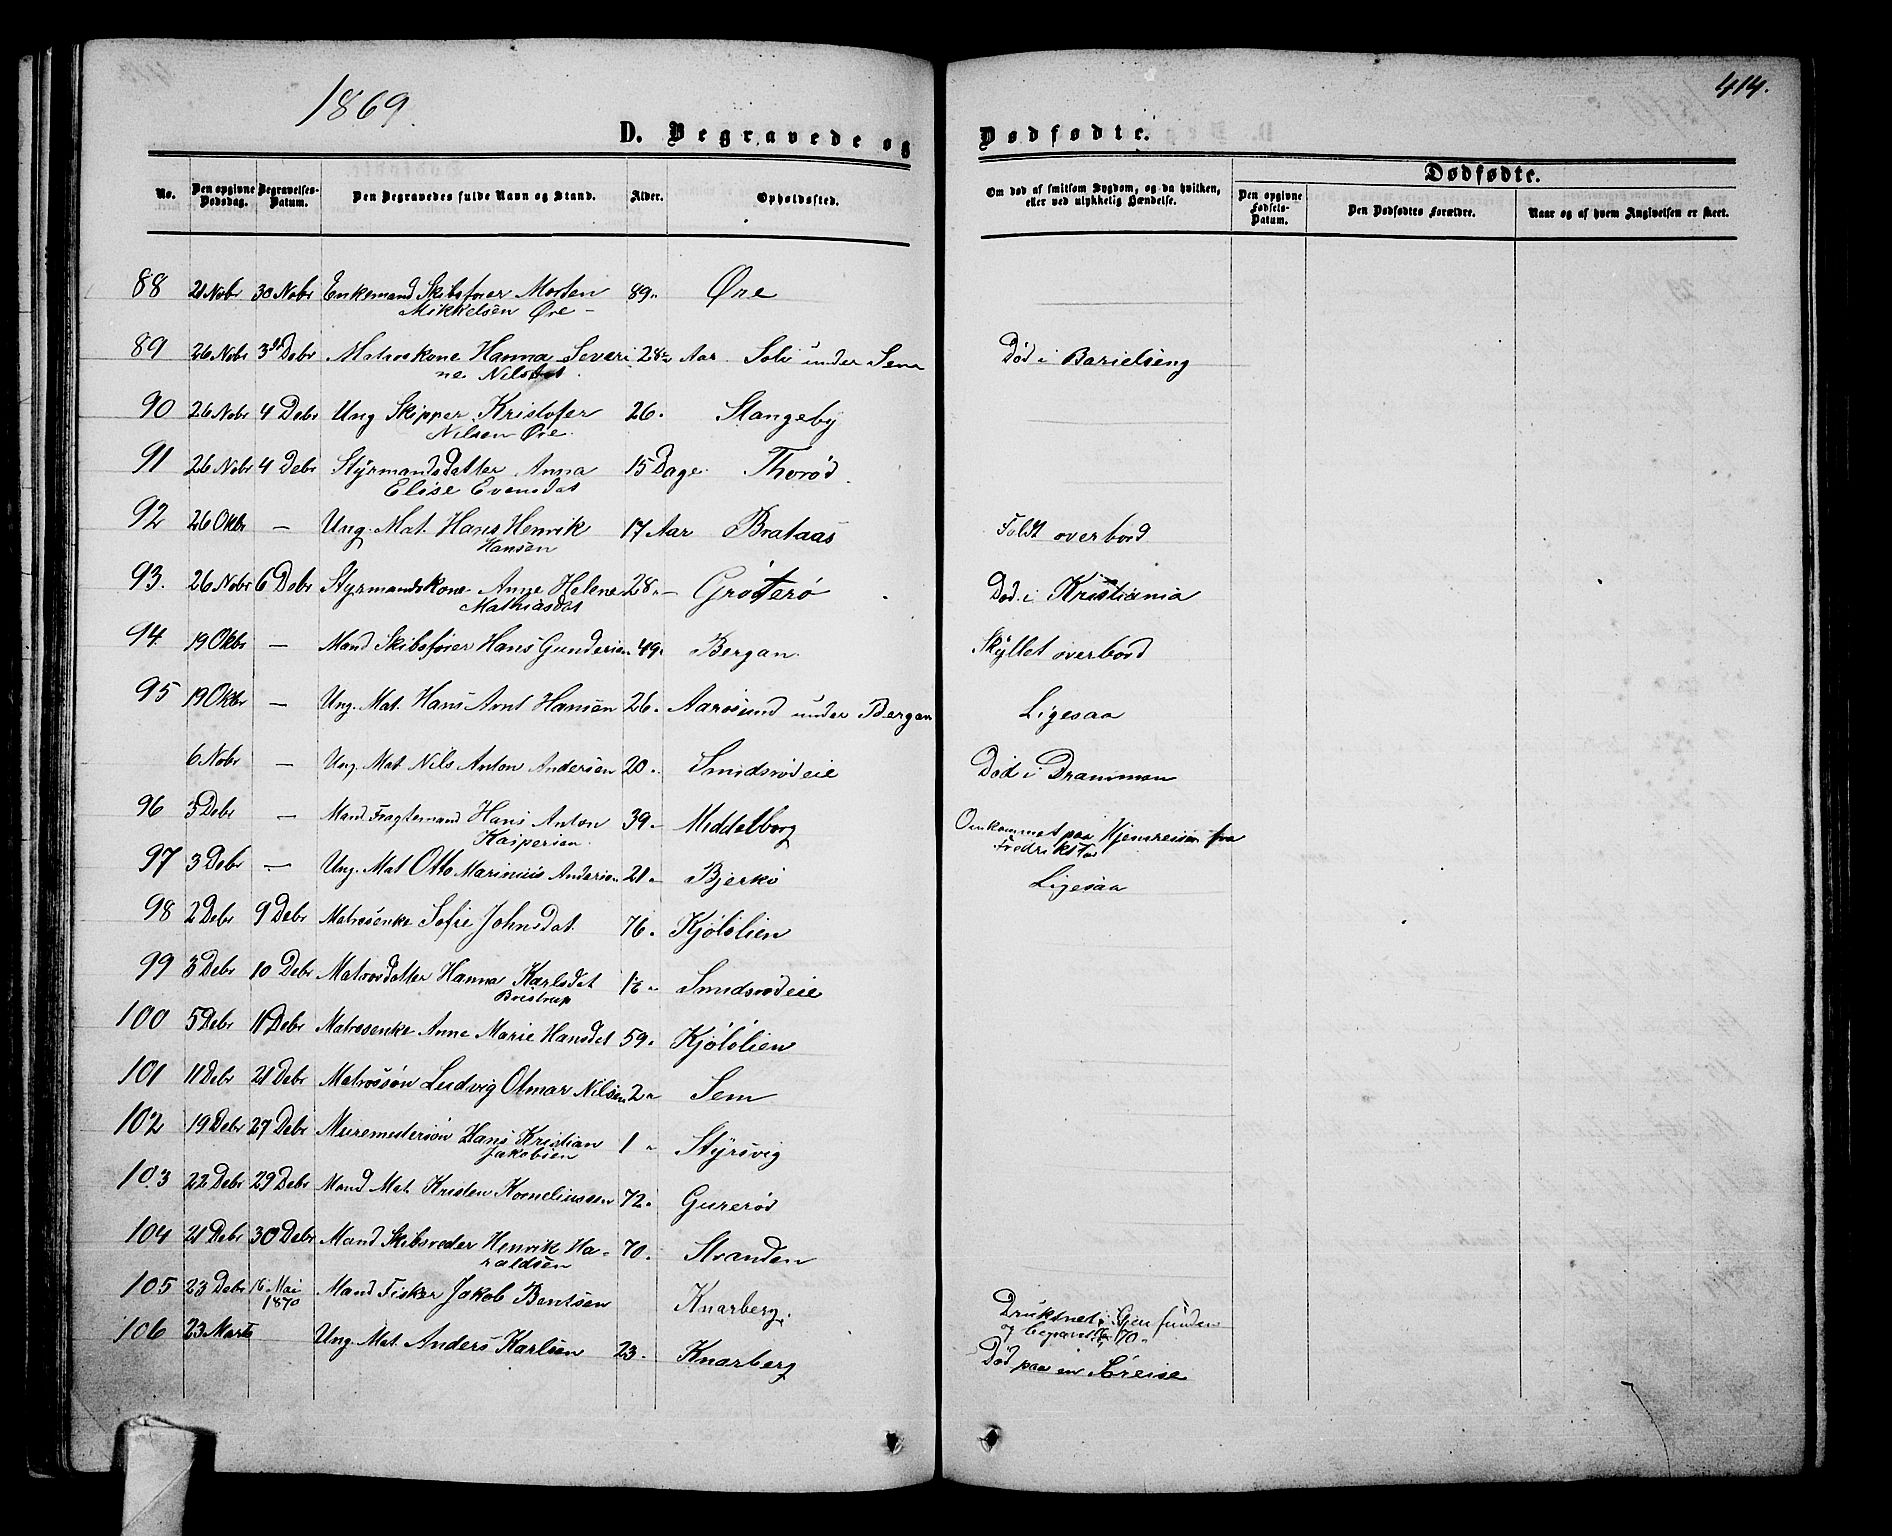 1869.
414.
D. Begravede og Dødfødte.
Dødfødte.
No.
Den opgivne Dødsdag.
Begravelses-Datum.
Den Begravedes fulde Navn og Stand.
Alder.
Opholdssted.
Om død af smitsom Sygdom, og da hvilken, eller ved ulykkelig Hændelse.
Den opgivne Fødsels-Datum.
Den Dødfødtes Forældre.
Naar og af hvem Angivelsen er skeet.
88 21 Nobr 30 Nobr Enkemand Skibsfører Morten 89 " Øre
Mikkelsen Øre -
89 26 Nobr 3 Debr Matroskone Hanna Severi 28 Aar under Sem Død i Barselseng
ne Nilsdat.
90 26 Nobr 4 Debr Ung Skipper Kristofer 26 " Stangeby
Nilsen Øre.
91 26 Nobr 4 Debr Styrmandsdatter Anna 15 Dage. Thorød.
Elise Evensdat
92 26 Okbr - Ung. Mat. Hans Henrik 17 Aar Brataas Faldt overbord
Hansen
93. 26 Nobr 6 Debr Styrmandskone Anne Helene 28 " - Grøtterø Død i Kristiania
Mathiasdat
94 19 Okbr - Mand Skibsfører Hans Gundersen 49 " Bergan. Skyllet overbord
95 19 Okbr - Ung. Mat. Hans Arnt Hansen 26 " Aarøsund under Bergan Ligesaa
6 Nobr - Ung. Mat. Nils Anton Andersen 20 " Smidsrødeie Død i Drammen
96 3 Debr - Mand Fragtemand Hans Anton 39 " Middelborg Omkommet paa Hjemreisen fra
Kaspersen. Fredrikstad
97 3 Debr - Ung. Mat Otto Marinius Andersen 21 " Bjerkø Ligesaa
98 2 Debr 9 Debr Matrosenke Sofie Johnsdat. 76 " Kjølølien
99 3 Debr 10 Debr Matrosdatter Hanna Karlsdat " Smidsrødeie
Bristrup
100 5 Debr 11 Debr Matrosenke Anne Marie Hansdat 59 " Kjølølien
101 11 Debr 21 Debr Matrossøn Ludvig Otmar Nilsen 2 " Sem
102 19 Debr 27 Debr Muremestersøn Hans Kristian 1 " Styrsvig
Jakobsen
103 22 Debr 29 Debr Mand Mat. Kristen Korneliussen 72 " Gurerød
104 21 Debr 30 Debr Mand Skibsreder Henrik Ha- 70 " Stranden
raldsen
105 23 Debr 16. Mai Mand Fisker Jakob Bentsen Knarberg. Druknet, Gjenfunden
1870 og begravet 70 "
106 23 Marts Ung. Mat. Anders Karlsen 23 " Knarberg Død paa en Søreise